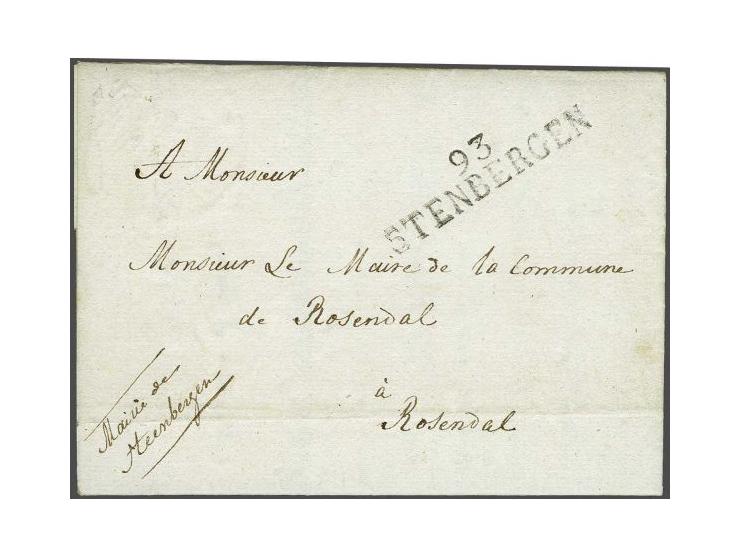 A Monsieur
93
STENBERGEN
Monsieur Le Maire de la Commune
de Rosendal
à
Rosendal
Mairie de
Steenbergen